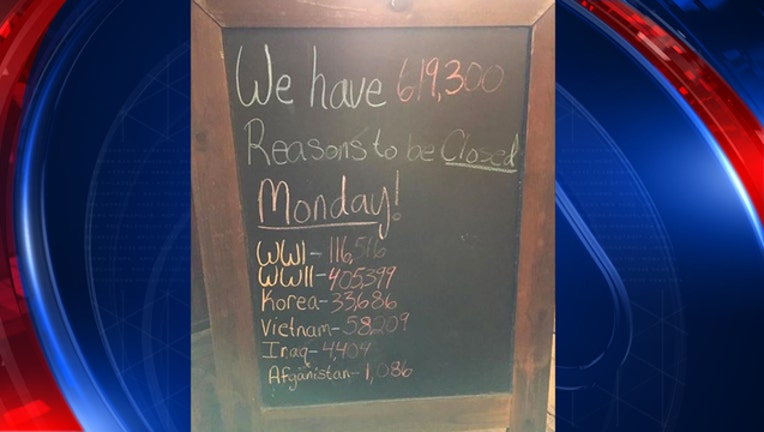 We have 619,300
Reasons to be Closed
Monday!
WWI-116,516
WWII-405,399
Korea-33,686
Vietnam-58,209
Iraq-4,404
Afganistan-1,086